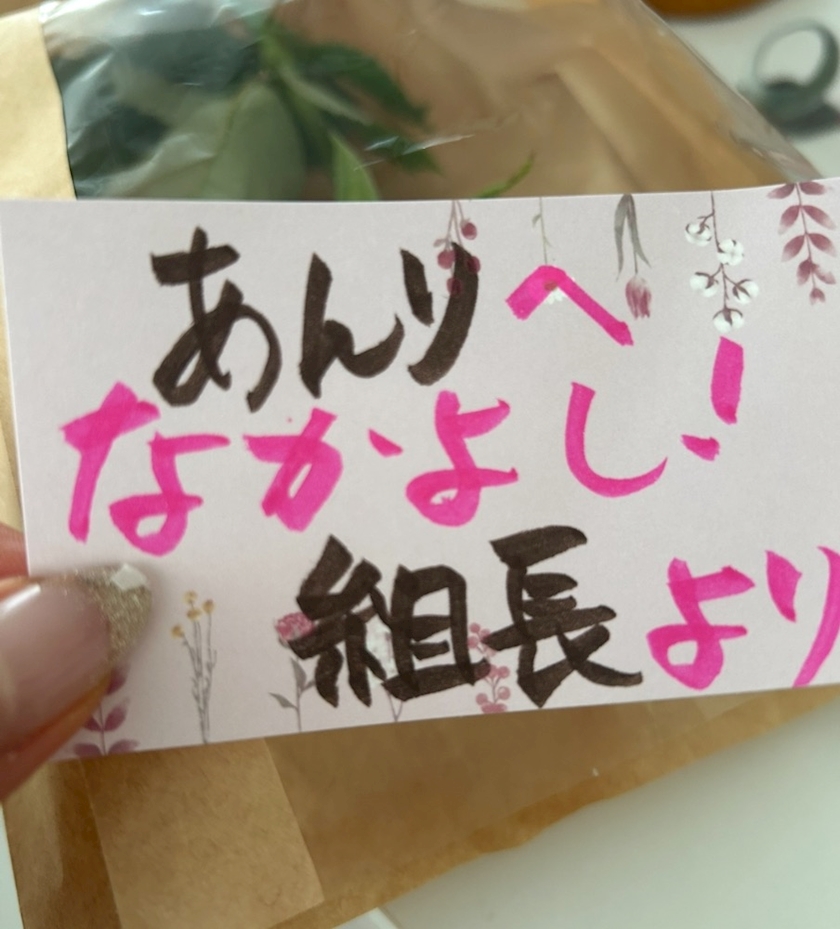 あんりへ
なかよし!
組長より